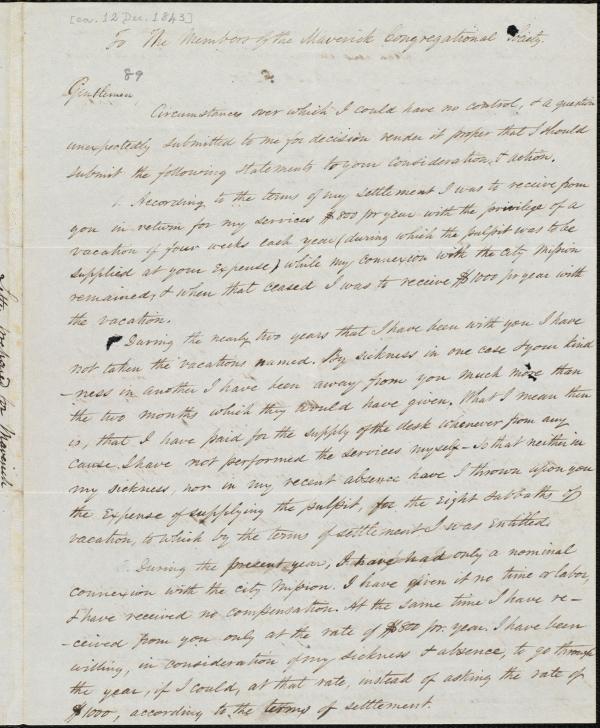 [ca. 12 Dec. 1843]
To The Members of the Maverick Congregational Society.
89
Gentlemen,
Circumstances over which I could have no control, & a question
unexpectedly submitted to me for decision render it proper that I should
submit the following statements to your consideration, & action.
1. According to the terms of my settlement I was to receive from
you in return for my services $800 pr year with the privilege of a
vacation of four weeks each year (during which the pulpit was to be
supplied at your expense) while my connexion with the city Mission
remained, & when that ceased I was to receive $1000 pr year with
the vacation.
During the nearly two years that I have been with you I have
not taken the vacations named. By sickness in one case & your kind
-ness in another I have been away from you much more than
the two months which they would have given. What I mean then
is, that I have paid for the supply of the desk whenever from any
cause I have not performed the services myself - so that neither in
my sickness, nor in my recent absence have I thrown upon you
the expense of supplying the pulpit, for the Eight Sabbaths of
vacation, to which by the terms of settlement I was entitled.
During the present year, I have had only a nominal
connexion with the city Mission. I have given it no time or labor,
& have received no compensation. At the same time I have re-
-ceived from you only at the rate of $800 pr. year. I have been
willing, in consideration of my sickness & absence, to go through
the year, if I could, at that rate, instead of asking the rate of
$1000, according to the terms of settlement.